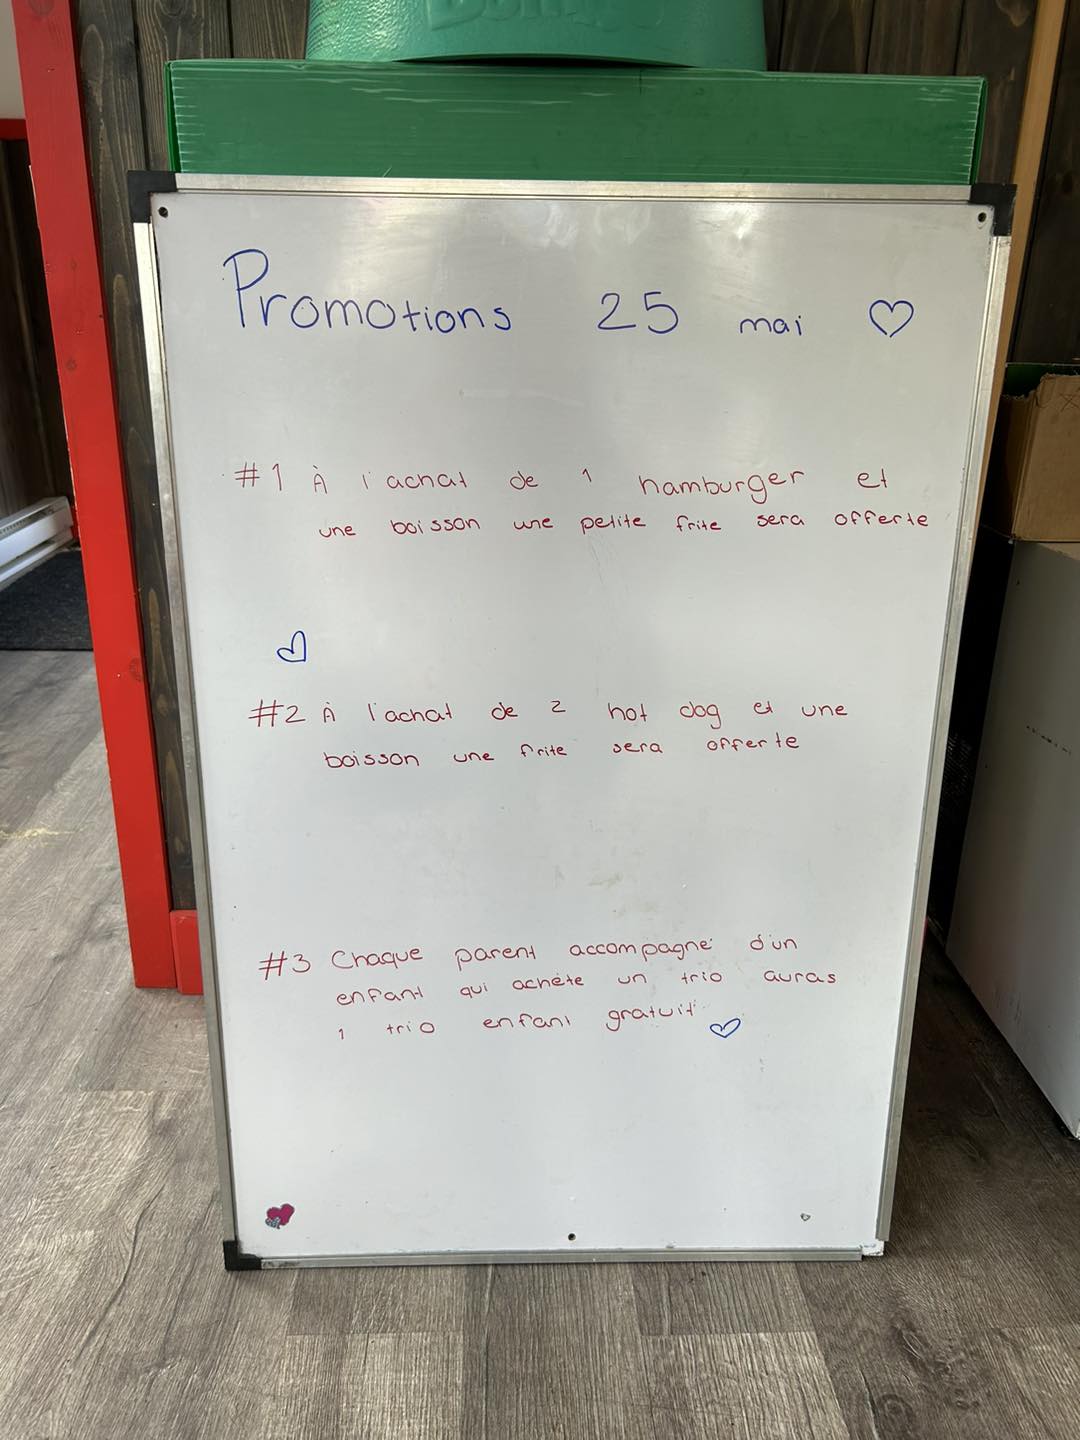 Promotions 25 mai
#1 À l'achat de 1 hamburger et
une boisson une petite frite sera offerte
#2 À l'achat de 2 hot dog et une
boisson une frite sera offerte
#3 Chaque parent accompagné d'un
enfant qui achète un trio auras
1 trio enfant gratuit